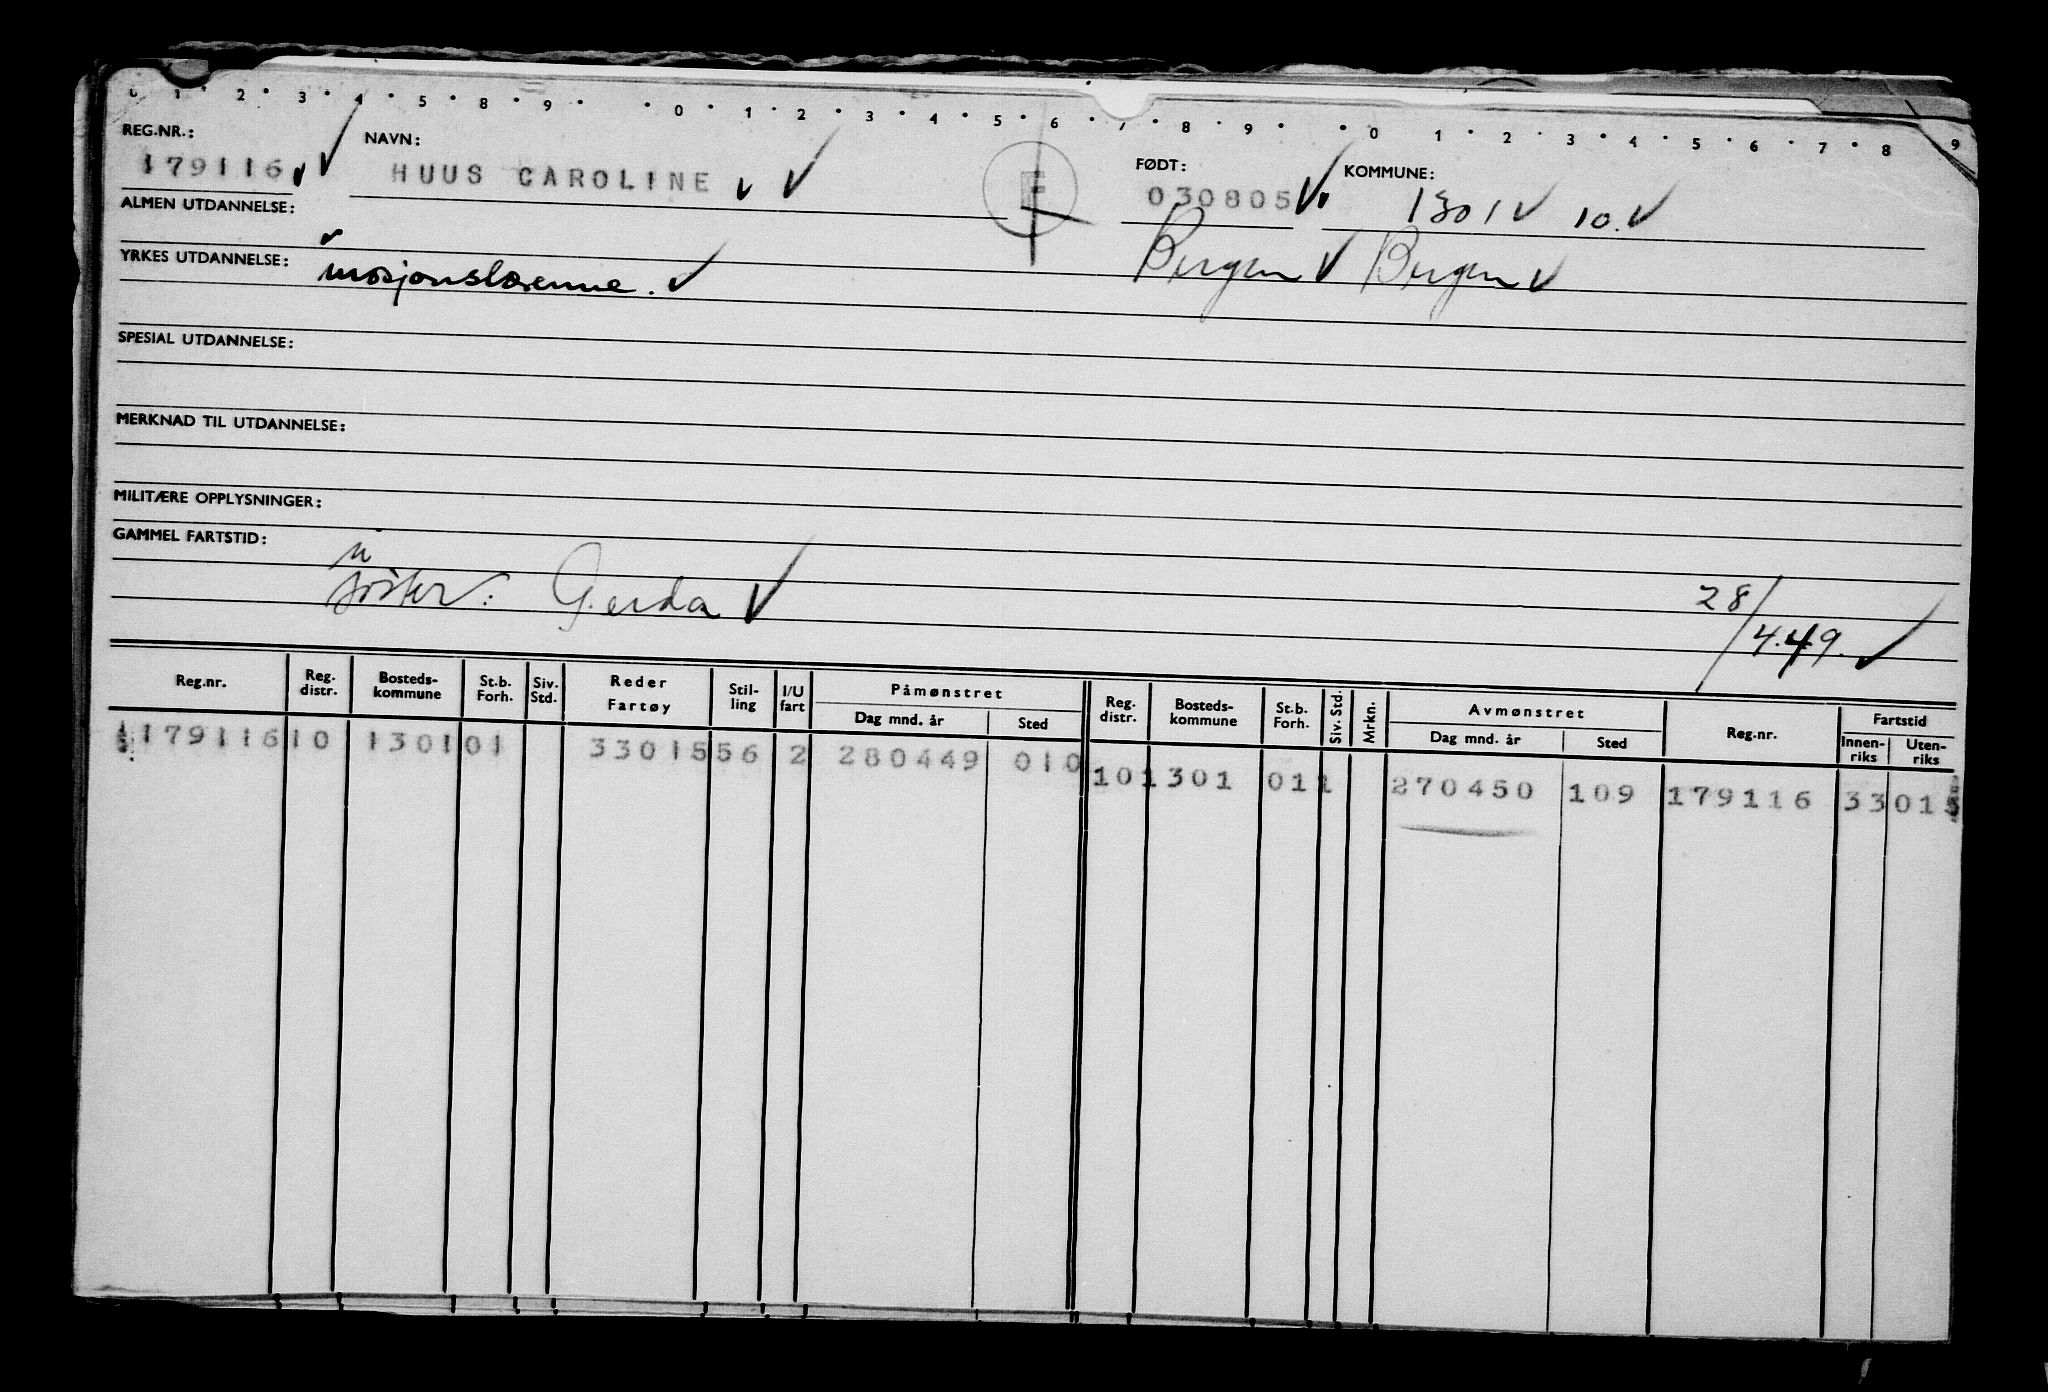 0 1 2 3 4 5 8 9 0 1 2 3 4 5 6 7 8 9 0 1 2 3 4 5 6 7 8 9
REG.NR.: NAVN: FØDT: KOMMUNE:
179116 HUUS CAROLINE F 030805 1301 10.
ALMEN UTDANNELSE: Bergen Bergen
YRKES UTDANNELSE: mosjonslærerinne.
SPESIAL UTDANNELSE:
MERKNAD TIL UTDANNELSE:
MILITÆRE OPPLYSNINGER:
GAMMEL FARTSTID:
søster: Gerda 28/4.49.
Reg.nr. Reg. distr. Bosteds-kommune St.b. Forh. Siv. Std. Reder Fartøy Stil-ling I/U fart Påmønstret Dag mnd. år Sted Reg. distr. Bosteds-kommune St.b. Forh. Siv. Std. Mrkn. Avmønstret Dag mnd. år Sted Reg.nr. Fartstid Innen-riks Uten-riks
179116 10 1301 01 33015 56 2 280449 010 10 1301 011 270450 109 179116 33015